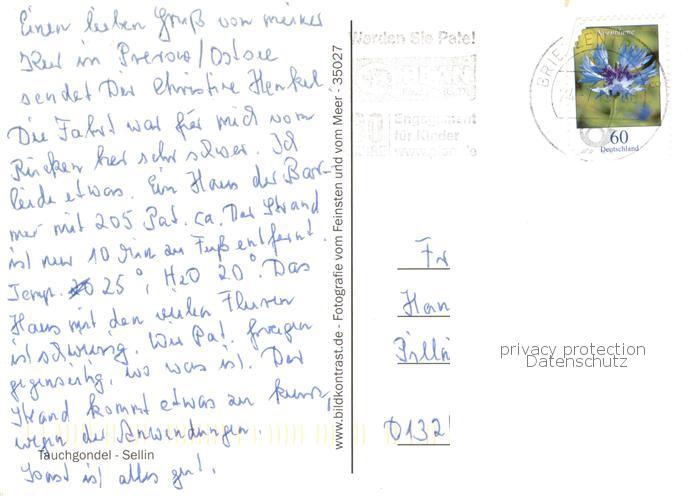 Einen lieben Gruß von meiner
Kur in Prerow/Ostsee
sendet Dir Christine Henkel
Die Fahrt war für mich vom
Rücken her sehr schwer. Ich
leide etwas. Ein Haus der Bar-
mer mit 205 Pat. ca. Der Strand
ist nur 10 Min zu Fuß entfernt.
Temp. 25°, H2O 20°. Das
Haus mit den vielen Fluren
ist schwierig. Wir Pat. fragen
gegenseitig, wo was ist. Der
Strand kommt etwas zu kurz,
wegen der Anwendungen.
Tauchgondel - Sellin
Sonst ist alles gut.
www.bildkontrast.de - Fotografie vom Feinsten und vom Meer - 35027
Werden Sie Pate!
PLAN
Engagement
für Kinder
www.plan.de
BRIEFZEN
Kornblume
60
Deutschland
Fr
Han
D132
privacy protection
Datenschutz